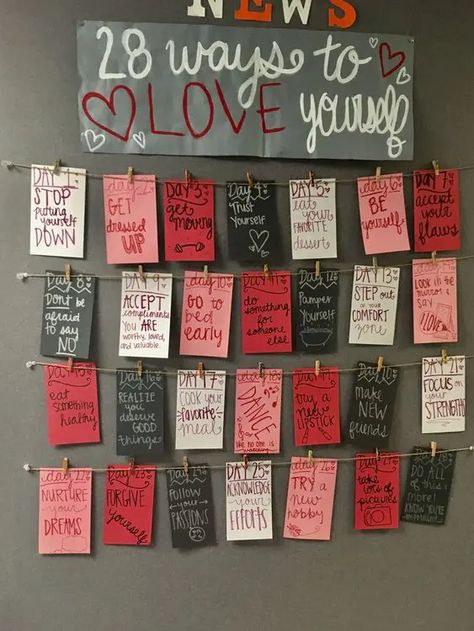 NEWS
28 ways to
LOVE yourself
DAY 1
STOP
putting
yourself
DOWN
day 2
GET
dressed
UP
Day 3
get
moving
DAY 4
Trust
Yourself
day 5
eat
your
favorite
dessert
day 6
BE
yourself
DAY 7
accept
your
flaws
DAY 8
Don't be
afraid
to say
NO
DAY 9
ACCEPT
compliments
YOU ARE
worthy, loved,
and valuable.
DAY 10
Go to
bed
early
day 11
do
something
for
someone
else
DAY 12
Pamper
Yourself
DAY 13
STEP out
of your
COMFORT
zone
day 14
Look in the
mirror &
say
day 15
eat
something
healthy
Day 16
REALIZE
you
deserve
GOOD
things
DAY 17
COOK
your
favorite
meal
day 18
DANCE
like no one is
watching
day 19
try
a new
lipstick
DAY 20
make
NEW
friends
DAY 21
FOCUS
on your
STRENGTHS
day 22
NURTURE
your
DREAMS
DAY 23
FORGIVE
yourself
DAY 24
Follow
your
PASSIONS
DAY 25
ACKNOWLEDGE
your
efforts
day 26
TRY a
new
hobby
day 27
take
lots of
pictures
DAY 28
DO ALL
of this
& more!
KNOW You're
important